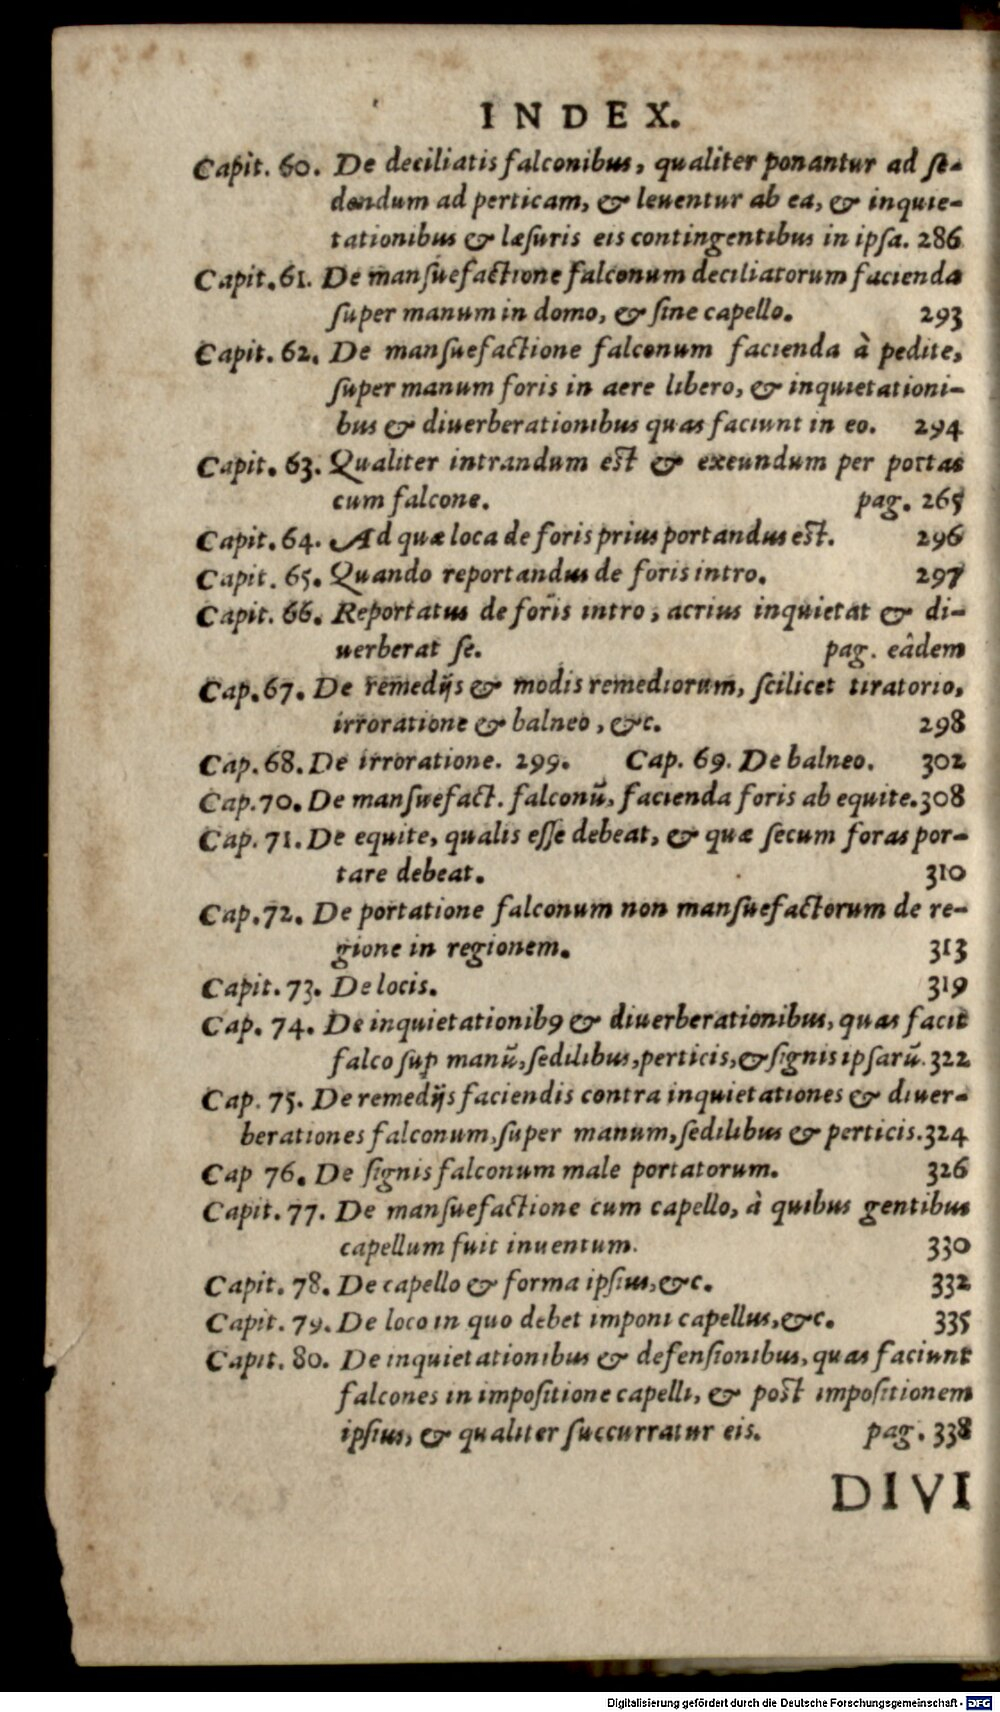 INDEX.
Capit. 60. De deciliatis falconibus, qualiter ponantur ad ſe-
dendum ad perticam, & leuentur ab ea, & inquie-
tationibus & læſuris eis contingentibus in ipſa. 286
Capit. 61. De manſuefactione falconum deciliatorum facienda
ſuper manum in domo, & ſine capello. 293
Capit. 62. De manſuefactione falconum facienda à pedite,
ſuper manum foris in aere libero, & inquietationi-
bus & diuerberationibus quas faciunt in eo. 294
Capit. 63. Qualiter intrandum eſt & exeundum per portas
cum falcone. pag. 265
Capit. 64. Ad quæ loca de foris prius portandus eſt. 296
Capit. 65. Quando reportandus de foris intro. 297
Capit. 66. Reportatus de foris intro, acrius inquietat & di-
uerberat ſe. pag. eâdem
Cap. 67. De remedijs & modis remediorum, ſcilicet tiratorio,
irroratione & balneo, &c. 298
Cap. 68. De irroratione. 299. Cap. 69. De balneo. 302
Cap. 70. De manſuefact. falconũ, facienda foris ab equite. 308
Cap. 71. De equite, qualis eſſe debeat, & quæ ſecum foras por-
tare debeat. 310
Cap. 72. De portatione falconum non manſuefactorum de re-
gione in regionem. 313
Capit. 73. De locis. 319
Cap. 74. De inquietationib9 & diuerberationibus, quas facit
falco ſuꝑ manũ, ſedilibus, perticis, & ſignis ipſarũ. 322
Cap. 75. De remedijs faciendis contra inquietationes & diuer-
berationes falconum, ſuper manum, ſedilibus & perticis. 324
Cap 76. De ſignis falconum male portatorum. 326
Capit. 77. De manſuefactione cum capello, à quibus gentibus
capellum fuit inuentum. 330
Capit. 78. De capello & forma ipſius, &c. 332
Capit. 79. De loco in quo debet imponi capellus, &c. 335
Capit. 80. De inquietationibus & defenſionibus, quas faciunt
falcones in impoſitione capelli, & poſt impoſitionem
ipſius, & qualiter ſuccurratur eis. pag. 338
DIVI
Digitalisierung gefördert durch die Deutsche Forschungsgemeinschaft - DFG